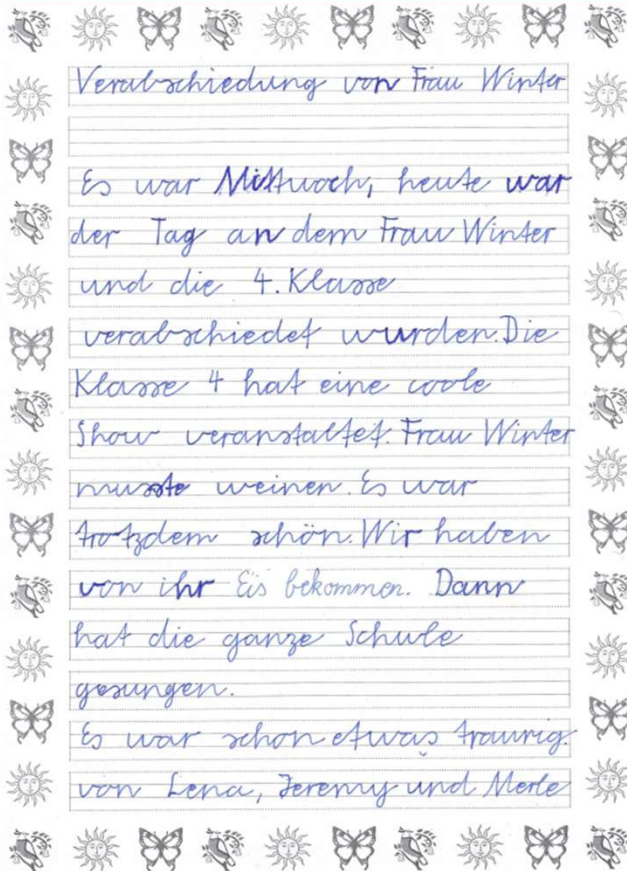 Verabschiedung von Frau Winter
Es war Mittwoch, heute war
der Tag an dem Frau Winter
und die 4. Klasse
verabschiedet wurden. Die
Klasse 4 hat eine coole
Show veranstaltet. Frau Winter
musste weinen. Es war
trotzdem schön. Wir haben
von ihr Eis bekommen. Dann
hat die ganze Schule
gesungen.
Es war schon etwas traurig.
von Lena, Jeremy und Merle